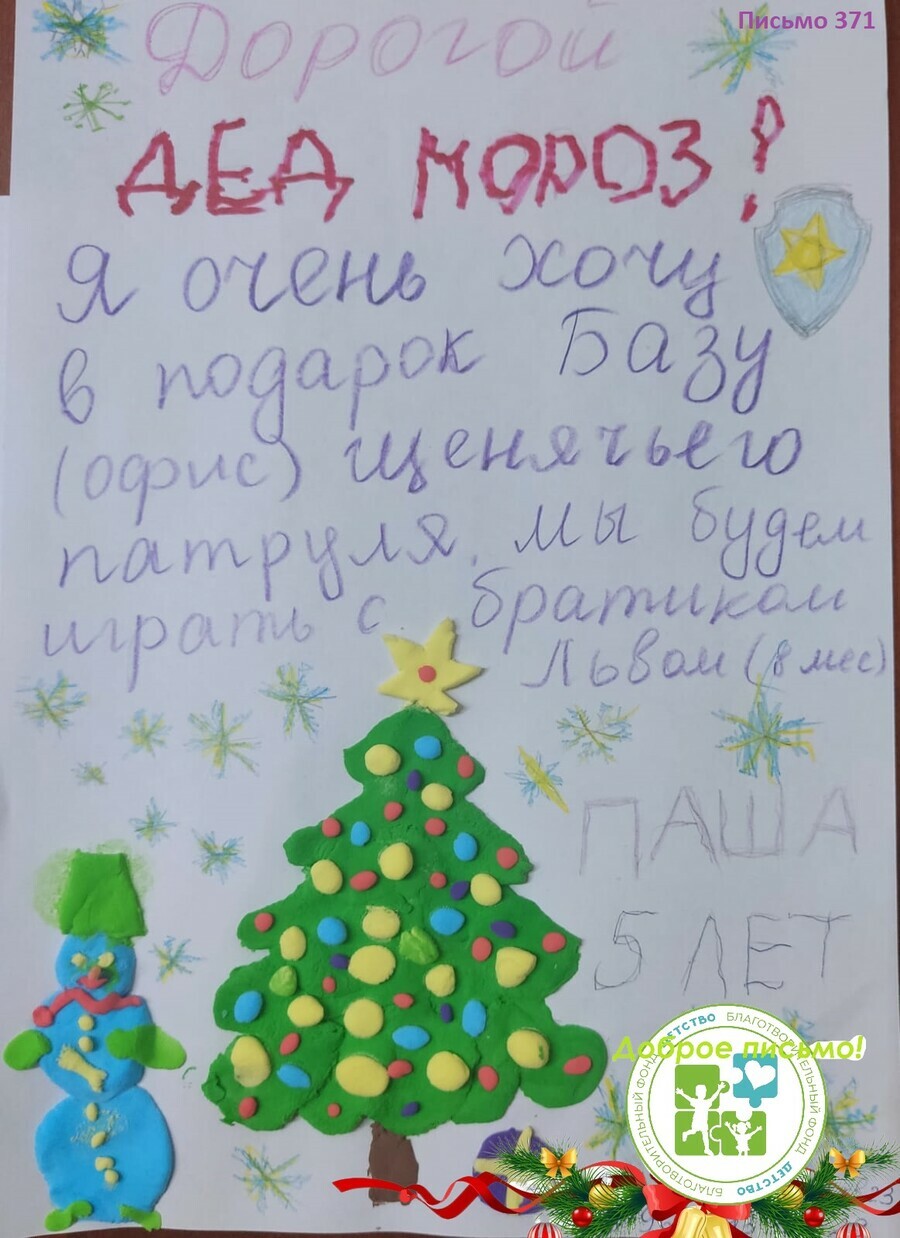 Письмо 371
Дорогой
ДЕД МОРОЗ!
Я очень хочу
в подарок Базу
(офис) щенячьего
патруля. мы будем
играть с братиком
Львом (8 мес)
ПАША
5 ЛЕТ
Доброе письмо!
БЛАГОТВОРИТЕЛЬНЫЙ ФОНД ДЕТСТВО БЛАГОТВОРИТЕЛЬНЫЙ ФОНД ДЕТСТВО